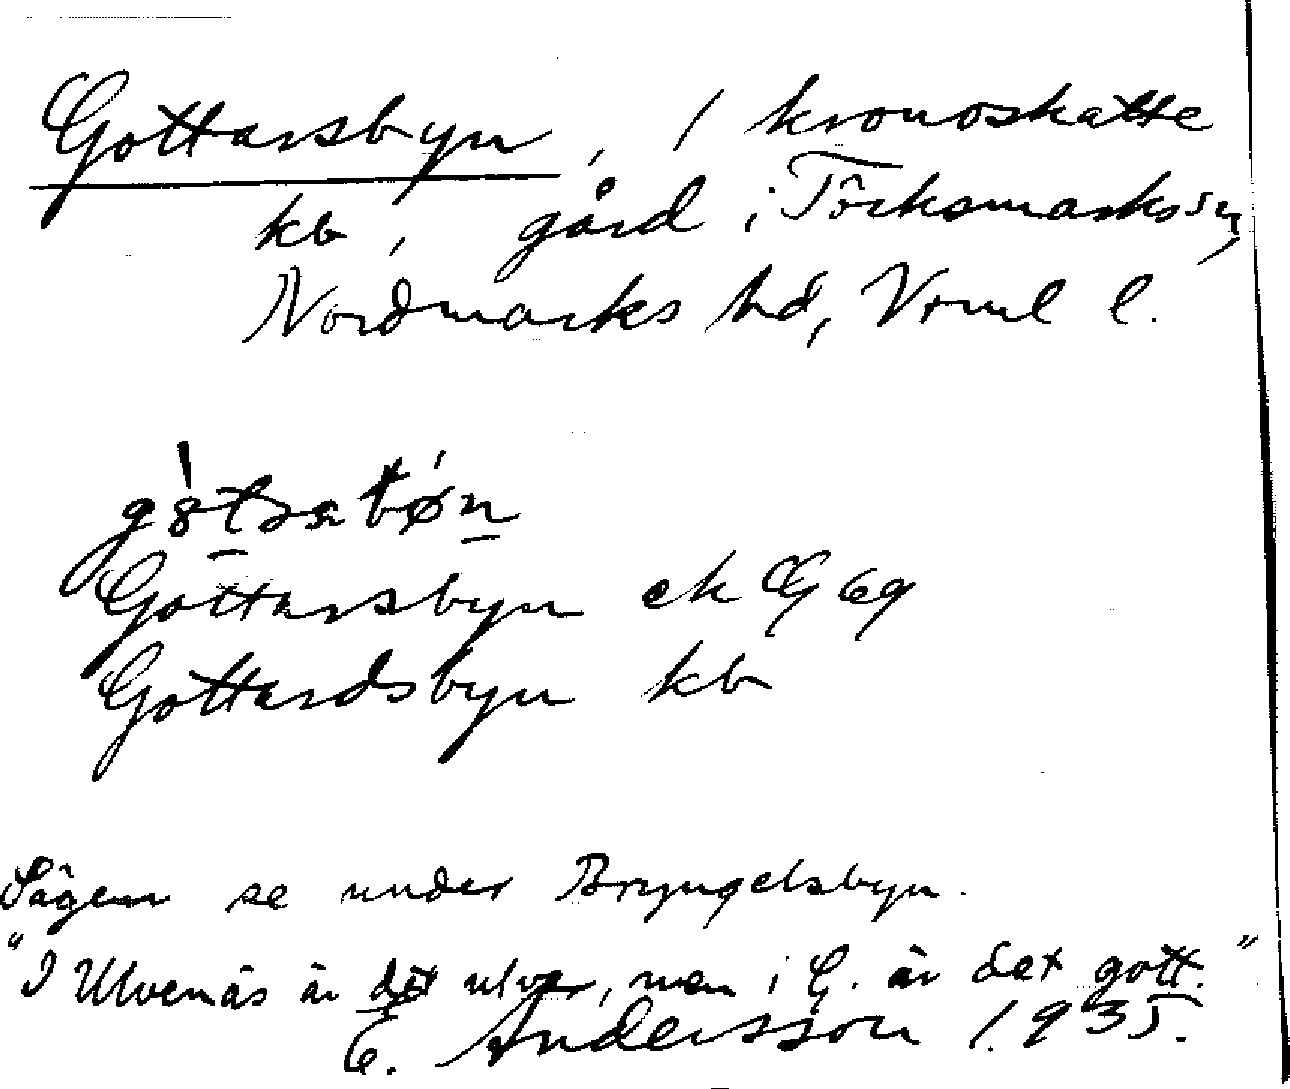 Gottarsbyn, 1 kronoskatte
kb, gård i Töcksmarks sn,
Nordmarks hd, Vrml l.
Gottarsbyn ek G 69
Gottardsbyn kb
Sägen se under Bryngelsbyn.
"I Ulvenäs är det ulver, men i G. är det gott."
E. Andersson 1935.